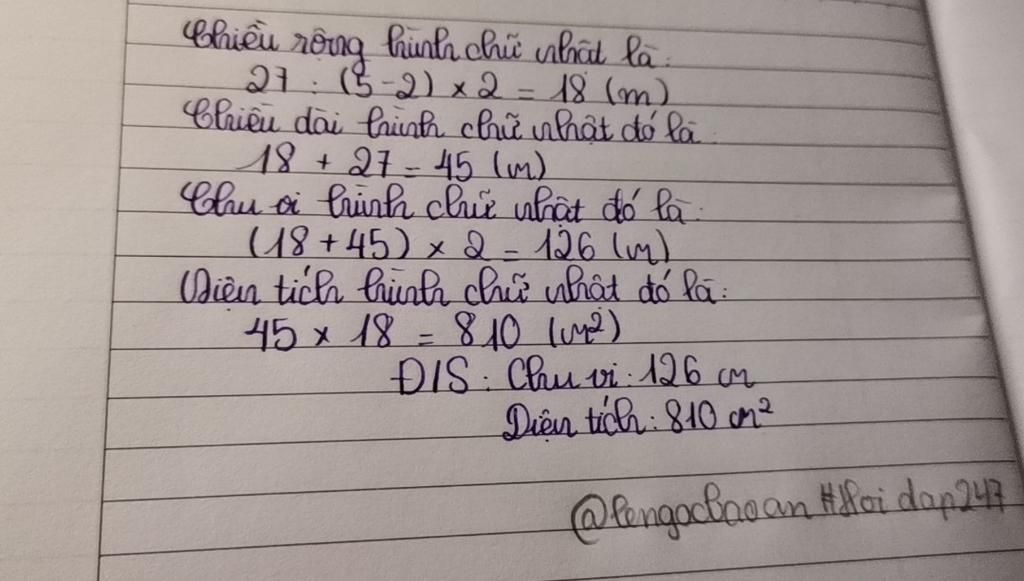 Chiều rộng hình chữ nhật là:
27 : (5-2) × 2 = 18 (m)
Chiều dài hình chữ nhật đó là
18 + 27 = 45 (m)
Chu vi hình chữ nhật đó là:
(18 + 45) × 2 = 126 (m)
Diện tích hình chữ nhật đó là:
45 × 18 = 810 (m²)
Đ/S : Chu vi : 126 cm
Diện tích : 810 cm²
@lengocbaoan #Hoidap247